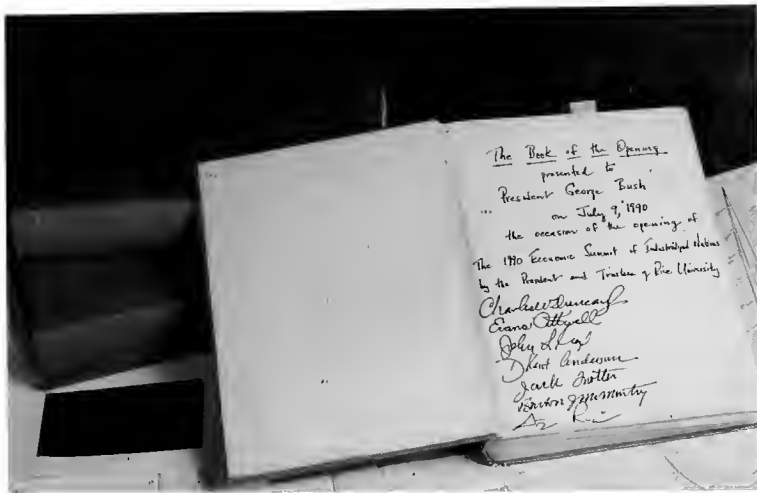 The Book of the Opening
presented to
President George Bush
on July 9, 1990
the occasion of the opening of
The 1990 Economic Summit of Industrialized Nations
by the President and Trustees of Rice University
Charles W Duncan Jr
Evans Attwell
John L
D Kent Anderson
Jack Trotter
Burton J McMurtry